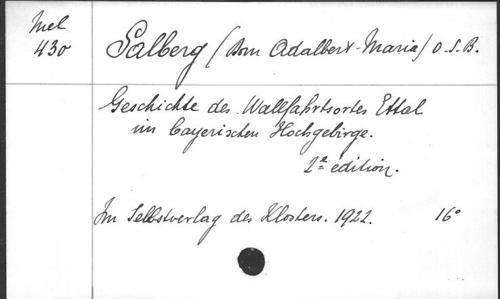 Mel
430
Salberg (Dom Adalbert-Maria) O.S.B.
Geschichte des Wallfahrtsortes Ettal
im bayerischen Hochgebirge.
2e édition.
Im Selbstverlag des Klosters. 1922. 16°